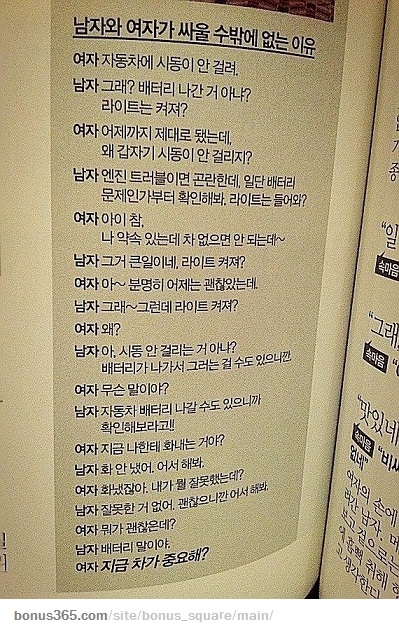 남자와 여자가 싸울 수밖에 없는 이유
여자 자동차에 시동이 안 걸려.
남자 그래? 배터리 나간 거 아냐?
라이트는 켜져?
여자 어제까지 제대로 됐는데,
왜 갑자기 시동이 안 걸리지?
남자 엔진 트러블이면 곤란한데, 일단 배터리
문제인가부터 확인해봐. 라이트는 들어와?
여자 아이 참,
나 약속 있는데 차 없으면 안 되는데~
남자 그거 큰일이네. 라이트 켜져?
여자 아~ 분명히 어제는 괜찮았는데.
남자 그래~그런데 라이트 켜져?
여자 왜?
남자 아, 시동 안 걸리는 거 아냐?
배터리가 나가서 그러는 걸 수도 있으니깐.
여자 무슨 말이야?
남자 자동차 배터리 나갈 수도 있으니까
확인해보라고!!
여자 지금 나한테 화내는 거야?
남자 화 안 냈어. 어서 해봐.
여자 화냈잖아. 내가 뭘 잘못했는데?
남자 잘못한 거 없어. 괜찮으니깐 어서 해봐.
여자 뭐가 괜찮은데?
남자 배터리 말이야.
여자 지금 차가 중요해?
"일
속마음
"그래,
속마음
"맛있네
속마음 "비싸
없네"
여자의 손에
bonus365.com/site/bonus_square/main/